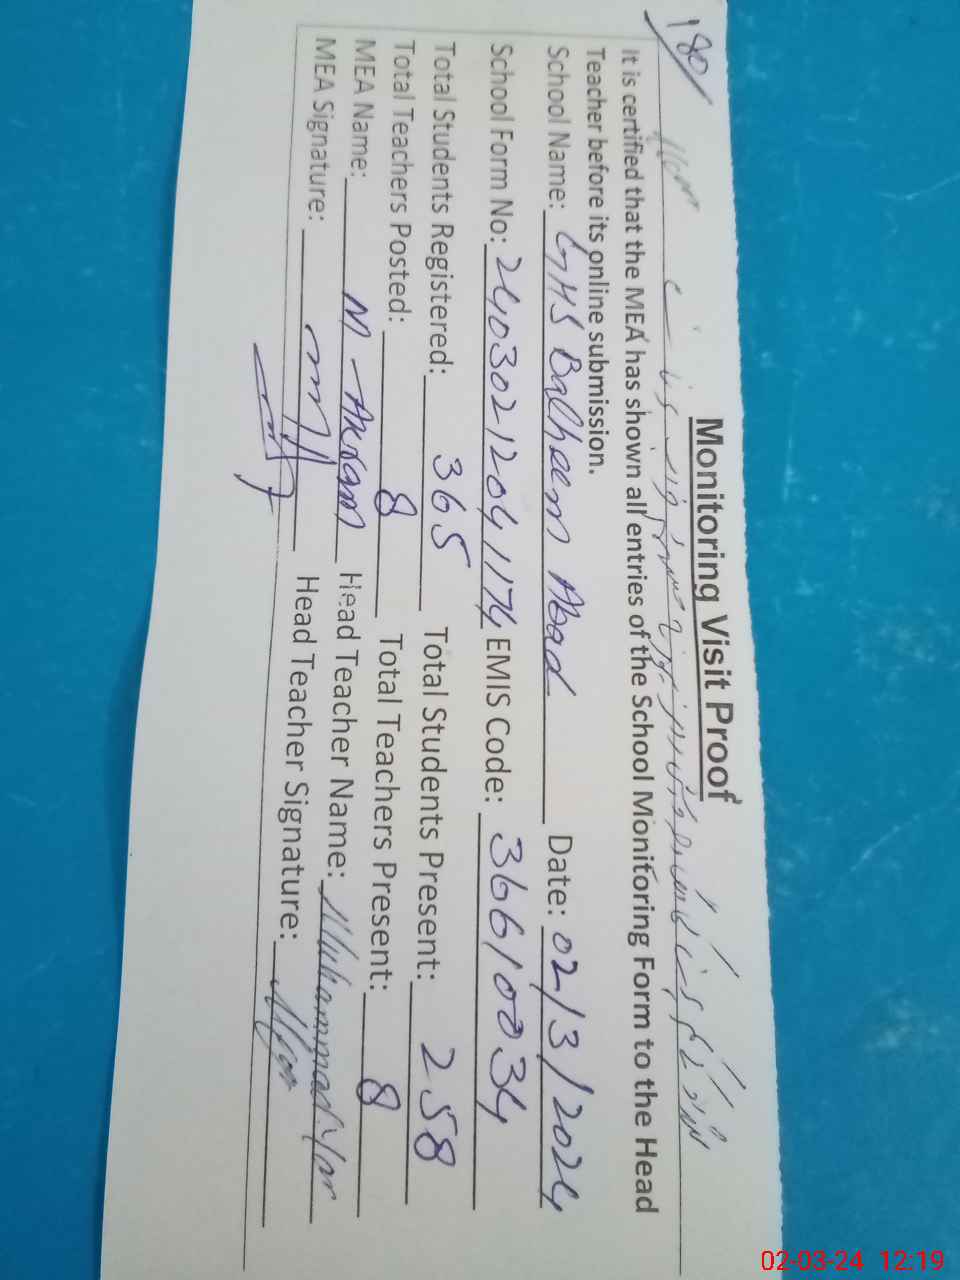 180
Monitoring Visit Proof
It is certified that the MEA has shown all entries of the School Monitoring Form to the Head
Teacher before its online submission.
School Name: GHS Balheem Abad Date: 02/3/2024
School Form No: 24030212041174 EMIS Code: 36610034
Total Students Registered: 365 Total Students Present: 258
Total Teachers Posted: 8 Total Teachers Present: 8
MEA Name: M Akram Head Teacher Name: Muhammad Yar
MEA Signature: Head Teacher Signature:
02-03-24 12:19